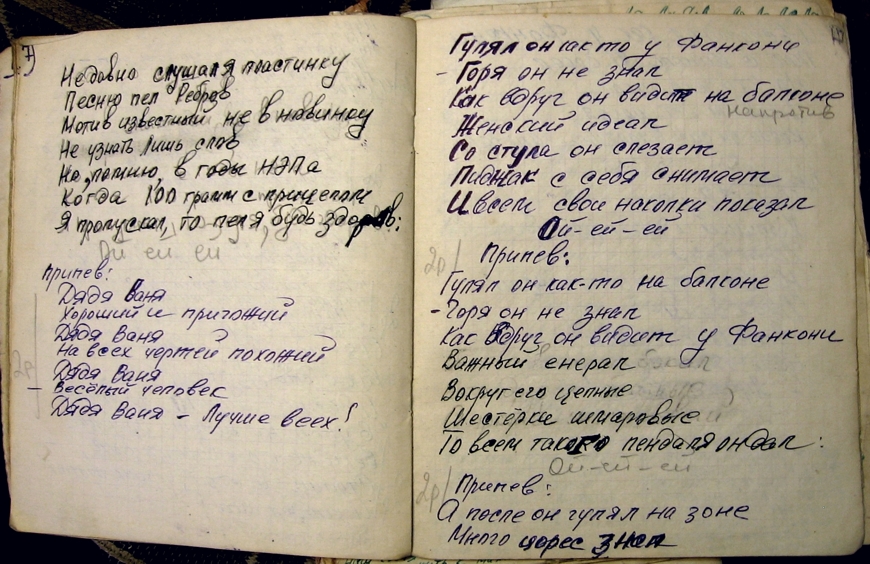 17)
Недавно слушал я пластинку
Песню пел Ребров
Мотив известный не в новинку
Не узнать лишь слов
Но, помню, в годы НЭПа
Когда 100 грамм с прицепом
Я пропускал, то пел я будь здоров:
Ой ей ей
Припев:
2р
Дядя Ваня
Хороший и пригожий
Дядя Ваня
На всех чертей похожий
Дядя Ваня
– Весёлый человек
Дядя Ваня – Лучше всех!
Гулял он как то у Фанкони
- Горя он не знал
Как вдруг он видит на балконе
напротив
Женский идеал
Со стула он слезает
Пиджак с себя снимает
И всем свои наколки показал
Ой-ей-ей
2р/ Припев:
Гулял он как-то на балконе
- Горя он не знал
Как вдруг он видит у Фанкони
Важный енерал
Вокруг его цепные
Шестёрки шмаровые
То всем такого пендаля он дал:
Ой-ей-ей
2р/ Припев:
А после он гулял на зоне
Много цорес знал